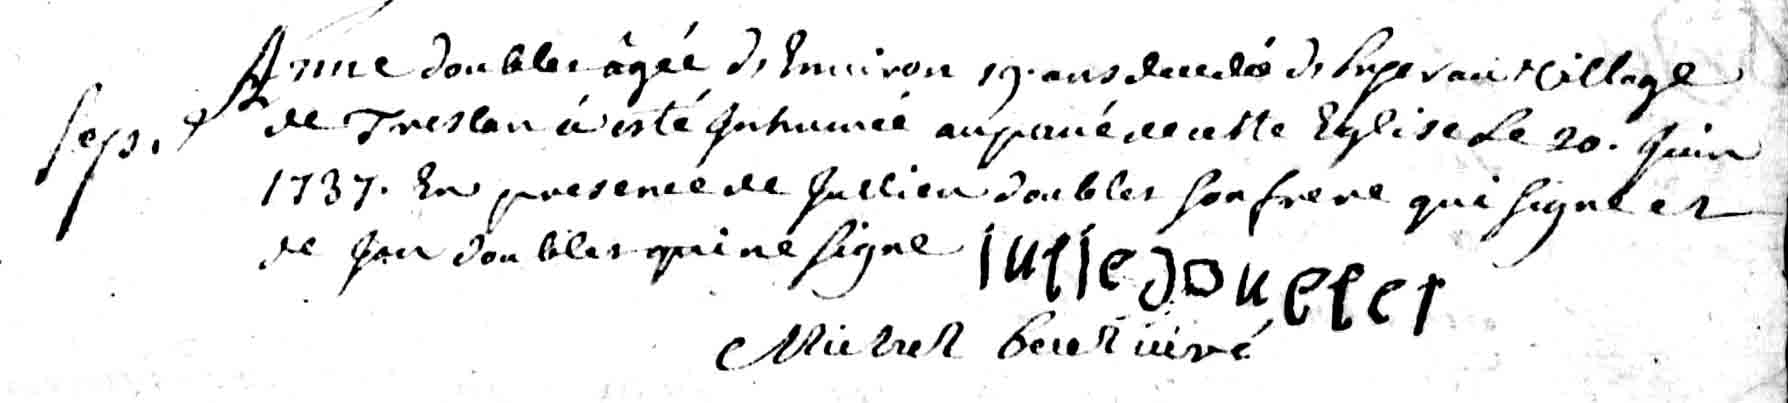 Anne doubles âgée de Environ 19. ans decedée de hyer au village
Sep. de Treslan à esté Inhumée au pavé de cette Eglise Le 20. Juin
1737. En presence de Jullien doubles son frere qui signe et
de Jan doubles qui ne signe
iulle doubles
Michel curé